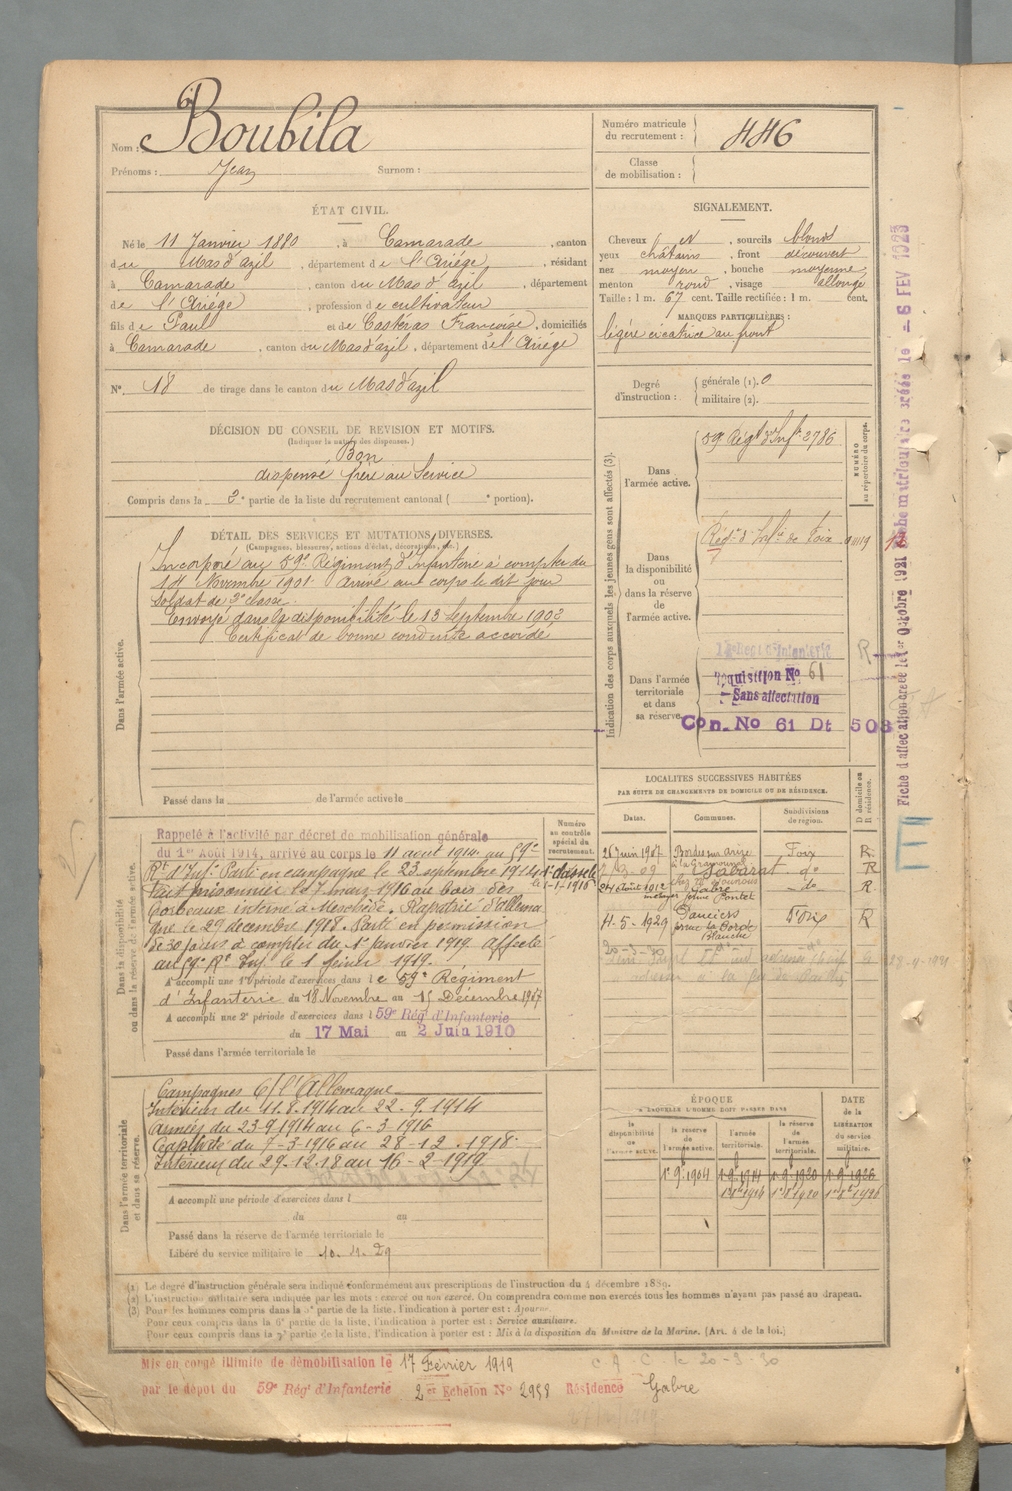 Nom : Boubila
Prénoms : Jean Surnom :
Numéro matricule
du recrutement : 446
Classe
de mobilisation :
ÉTAT CIVIL.
Né le 11 Janvier 1880, à Camarade, canton
du Mas d'azil, département de l'Ariége, résidant
à Camarade, canton du Mas d'azil, département
de l'Ariége, profession de cultivateur
fils de Paul et de Castéras Françoise, domiciliés
à Camarade, canton du Mas d'azil, département de l'Ariége
N° 18 de tirage dans le canton du Mas d'azil
SIGNALEMENT.
Cheveux et, sourcils blonds
yeux châtains, front découvert
nez moyen, bouche moyenne
menton rond, visage allongé
Taille : 1 m. 67 cent. Taille rectifiée : 1 m. cent.
MARQUES PARTICULIÈRES :
légère cicatrice au front
Degré
d'instruction :
générale (1). 0
militaire (2).
DÉCISION DU CONSEIL DE REVISION ET MOTIFS.
(Indiquer la nature des dispenses.)
Bon
dispensé frère au Service
Compris dans la 2e partie de la liste du recrutement cantonal ( e portion).
DÉTAIL DES SERVICES ET MUTATIONS DIVERSES.
(Campagnes, blessures, actions d'éclat, décorations, etc.)
Dans l'armée active.
Incorporé au 59e Régiment d'Infanterie à compter du
14 Novembre 1901. Arrivé au corps le dit jour
soldat de 2e classe.
Envoyé dans la disponibilité le 13 Septembre 1902
Certificat de bonne conduite accordé
Passé dans la de l'armée active le
Indication des corps auxquels les jeunes gens sont affectés (3).
Dans
l'armée active.
59 Régt d'Infie 2786
NUMÉRO
au répertoire du corps.
Dans
la disponibilité
ou
dans la réserve
de
l'armée active.
Régt d'Infie de Foix
Dans l'armée
territoriale
et dans
sa réserve.
Réquisition No 61
Sans affectation
Con. No 61 Dt 508
LOCALITÉS SUCCESSIVES HABITÉES
PAR SUITE DE CHANGEMENTS DE DOMICILE OU DE RÉSIDENCE.
Dates. Communes. Subdivisions
de région.
D domicile ou
R résidence.
26 Juin 1907 Bordes sur arize Foix R
Gabarat do R
24 août 1912 Gabre do R
métayer ferme Pontet
4.5.1929 Foix R
20-3-30
Dans la disponibilité
ou dans la réserve de l'armée active.
Numéro
au contrôle
spécial du
recrutement.
Rappelé à l'activité par décret de mobilisation générale
du 1er Août 1914, arrivé au corps le 11 août 1914 au 59e
Rt d'Infie Parti en campagne le 23 septembre 1914
Fait prisonnier le 7 mars 1916 au bois des
Corbeaux interné à Meschède. Rapatrié d'allema
gne le 29 decembre 1918. Parti en permission
de 30 jours à compter du 1er janvier 1919. Affecté
au 59e Rt Inf. le 1 fevier 1919.
A accompli une 1re période d'exercices dans le 59e Régiment
d'Infanterie du 18 Novembre au 15 Décembre 1907
A accompli une 2e période d'exercices dans l 59e Régt d'Infanterie
du 17 Mai au 2 Juin 1910
Passé dans l'armée territoriale le
Dans l'armée territoriale
et dans sa réserve.
Campagnes c/ l'Allemagne
Intérieur du 11.8.1914 au 22.9.1914
Armées du 23-9-1914 au 6-3-1916
Captivité du 7-3-1916 au 28-12.1918.
Intérieur du 29.12.18 au 16-2-1919
A accompli une période d'exercices dans l
du au
Passé dans la réserve de l'armée territoriale le
Libéré du service militaire le 10.11.29
ÉPOQUE
A LAQUELLE L'HOMME DOIT PASSER DANS
la
disponibilité
de
l'armée active.
la réserve
de
l'armée active.
l'armée
territoriale.
la réserve
de
l'armée
territoriale.
DATE
de la
LIBÉRATION
du service
militaire.
1er 9 1904 1er 9 1914 1er 9 1920 1er 9 1926
(1) Le degré d'instruction générale sera indiqué conformément aux prescriptions de l'instruction du 4 décembre 1889.
(2) L'instruction militaire sera indiquée par les mots : exercé ou non exercé. On comprendra comme non exercés tous les hommes n'ayant pas passé au drapeau.
(3) Pour les hommes compris dans la 5e partie de la liste, l'indication à porter est : Ajourné.
Pour ceux compris dans la 6e partie de la liste, l'indication à porter est : Service auxiliaire.
Pour ceux compris dans la 7e partie de la liste, l'indication à porter est : Mis à la disposition du Ministre de la Marine. (Art. 4 de la loi.)
Mis en congé illimité de démobilisation le 17 Février 1919
par le dépôt du 59e Régt d'Infanterie 2e Echelon No 2958 Résidence Gabre